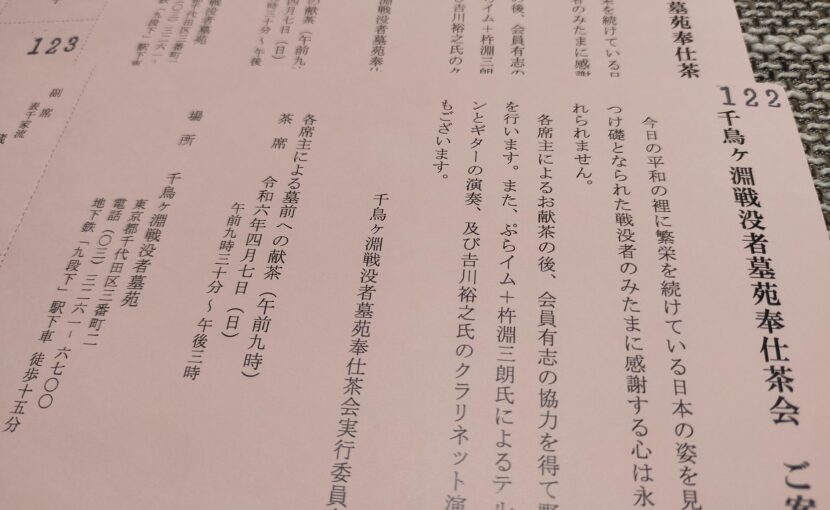 122
千鳥ヶ淵戦没者墓苑奉仕茶会　ご案
今日の平和の裡に繁栄を続けている日本の姿を見
つけ礎となられた戦没者のみたまに感謝する心は永
れられません。
各席主によるお献茶の後、会員有志の協力を得て野
を行います。また、ぷらイム＋杵淵三朗氏によるテル
ンとギターの演奏、及び吉川裕之氏のクラリネット演
もございます。
千鳥ヶ淵戦没者墓苑奉仕茶会実行委員
各席主による墓前への献茶（午前九時）
茶　席　令和六年四月七日（日）
午前九時三十分～午後三時
場　所　千鳥ヶ淵戦没者墓苑
東京都千代田区三番町二
電話（〇三）三二六一－六七〇〇
地下鉄「九段下」駅下車　徒歩十五分
墓苑奉仕茶
を続けている日
のみたまに感謝
後、会員有志の
イム＋杵淵三朗
吉川裕之氏のク
千鳥ヶ淵戦没者墓苑奉仕
の献茶（午前九
四月七日（日）
三十分～午後
戦没者墓苑
千代田区三番町
（〇三）三二六一
「九段下」駅下
123
副　席
表千家流